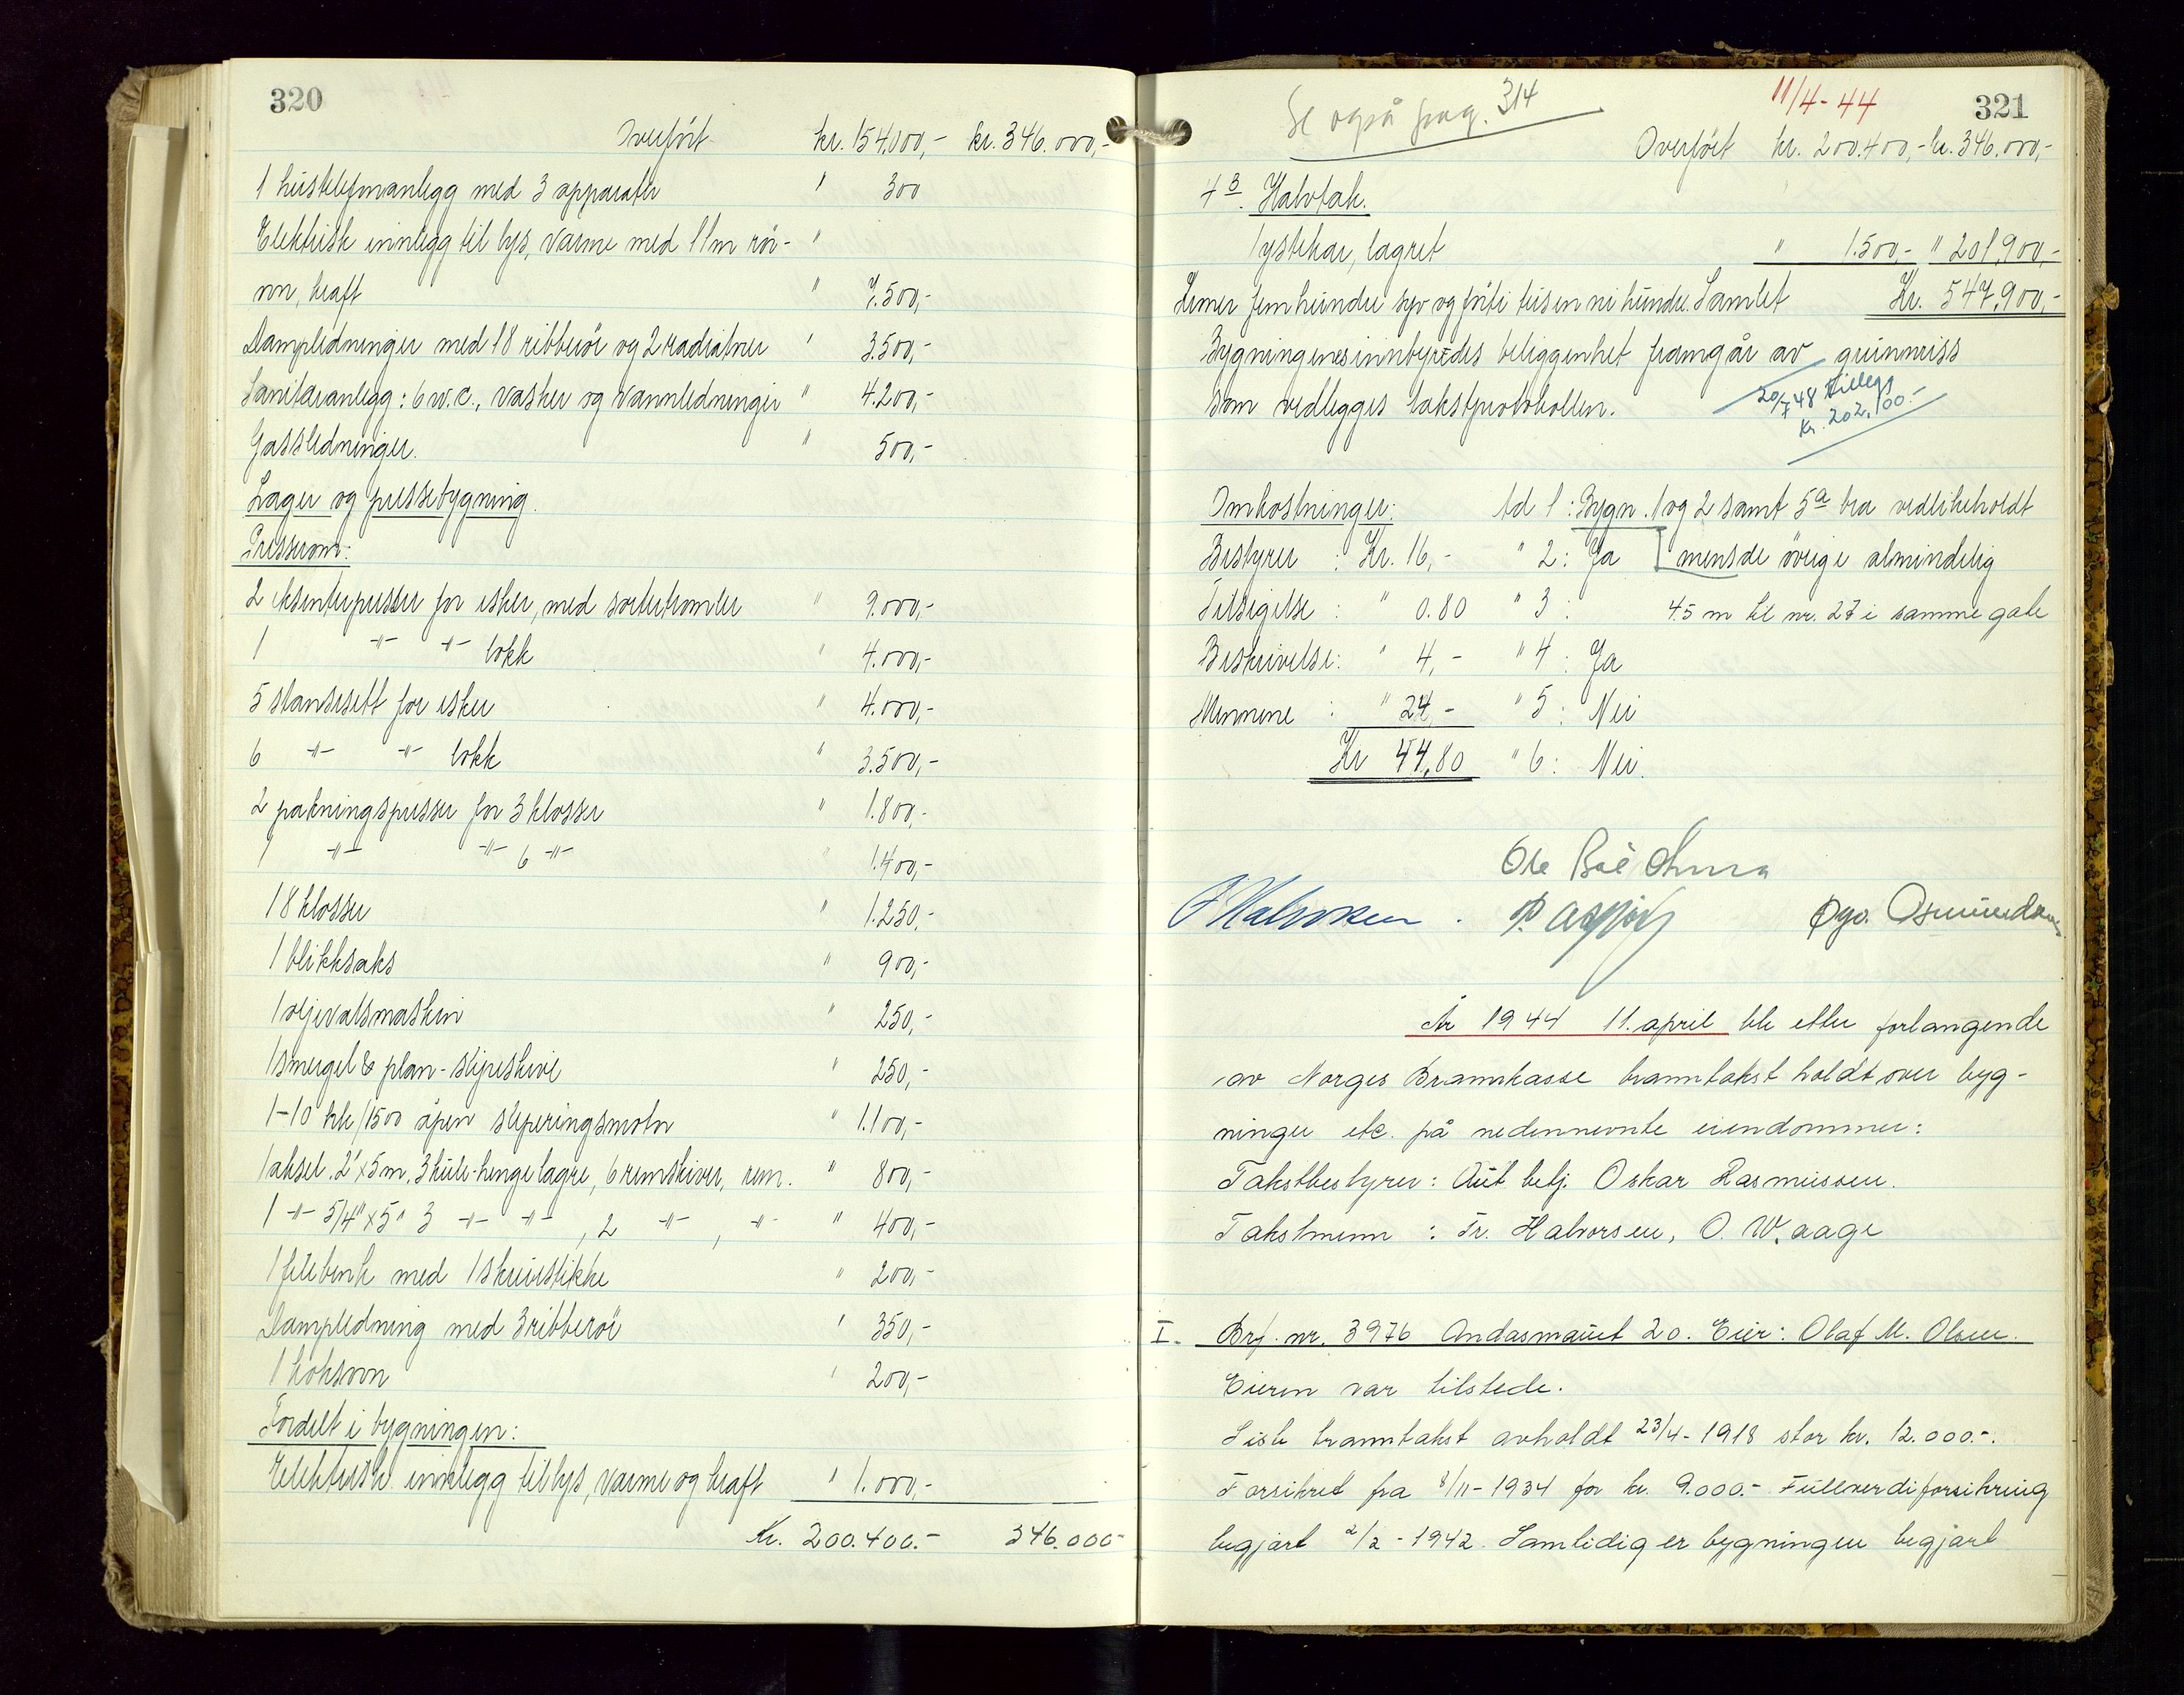 320
Overført kr. 154.000,- kr. 346.000,-
1 hustelefonanlegg med 3 apparater " 300
Elektrisk innlegg til lys, varme med 11 m rör- "
ovn, kraft " 7.500,-
Dampledninger med 18 ribberör og 2 radiatorer " 3.500,-
Sanitæranlegg: 6 w.c., vasker og vannledninger " 4.200,-
Gassledninger. " 500,-
Lager og pressebygning.
Presserom:
2 eksenterpresser for esker, med sortertromler " 9.000,-
1 -"- -"- lokk " 4.000,-
5 stansesett for esker " 4.000,-
6 -"- -"- lokk " 3.500,-
2 pakningspresser for 3 klosser " 1.800,-
1 -"- -"- 6 -"- " 1.400,-
18 klosser " 1.250,-
1 blikksaks " 900,-
1 oljevalsmaskin " 250,-
1 smergel & plan-slipeskive " 250,-
1-10 hk/1500 åpen sleperingsmotor " 1.100,-
1 aksel. 2"x5m, 3 kule-hengelagre, 6 remskiver, rem. " 800,-
1 -"- 5/4"x5" 3 -"- -"- , 2 -"- , -"- " 400,-
1 filebenk med 1 skruestikke " 200,-
Dampledning med 3 ribberör " 350,-
1 koksovn " 200,-
Fordelt i bygningen:
Elektrisk innlegg til lys, varme og kraft " 1.000,-
Kr. 200.400.- 346.000-
Se også pag. 314
11/4-44
321
Overfört kr. 200.400,- kr. 346.000,-
4 B. Halvtak.
1 ystekar, lagret " 1.500,- " 201.900,-
Femhundre syv og förti tusen ni hundre. Samlet Kr. 547.900,-
Bygningenes innbyrdes beliggenhet framgår av grunnriss
som vedlegges takstprotokollen.
20/7 48 tillegg
kr. 202.100.-
Omkostninger: Ad 1: Bygn. 1 og 2 samt 5a bra vedlikeholdt
Bestyrer : Kr. 16,- " 2: Ja mens de övrige almindelig
Tilsigelse : " 0.80 " 3 : 45 m til nr. 27 i samme gate
Beskrivelse: " 4,- " 4 : Ja
Mennene : " 24,- " 5 : Nei
Kr 44,80 " 6: Nei.
Halvorsen
År 1944 11. april ble etter forlangende
av Norges Brannkasse branntakst holdt over byg-
ninger etc. på nedennevnte eiendommer:
Takstbestyrer: Aut. betj. Oskar Rasmussen.
Takstmenn : Fr. Halvorsen, O. Waage
I. Brf. nr. 3976 Andasmauet 20. Eier: Olaf M. Olsen.
Eieren var tilstede.
Siste branntakst avholdt 23/4-1918 stor kr. 12.000.-.
Forsikret fra 8/11-1934 for kr. 9.000.- Fullverdiforsikring
begjært 2/2-1942. Samtidig er bygningen begjært